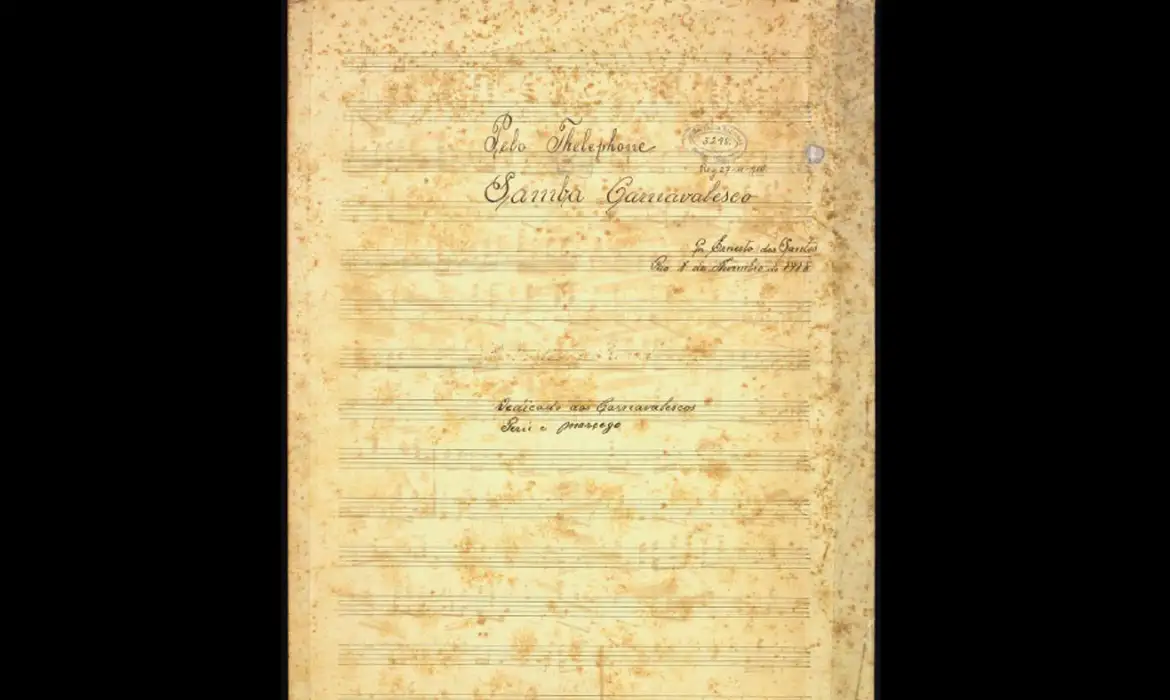 Pelo Thelephone
3.295.
Reg 27-11-916
Samba Carnavalesco
Por Ernesto dos Santos
Rio de Novembro de 1916
Dedicado aos Carnavalescos
Perú e morcego